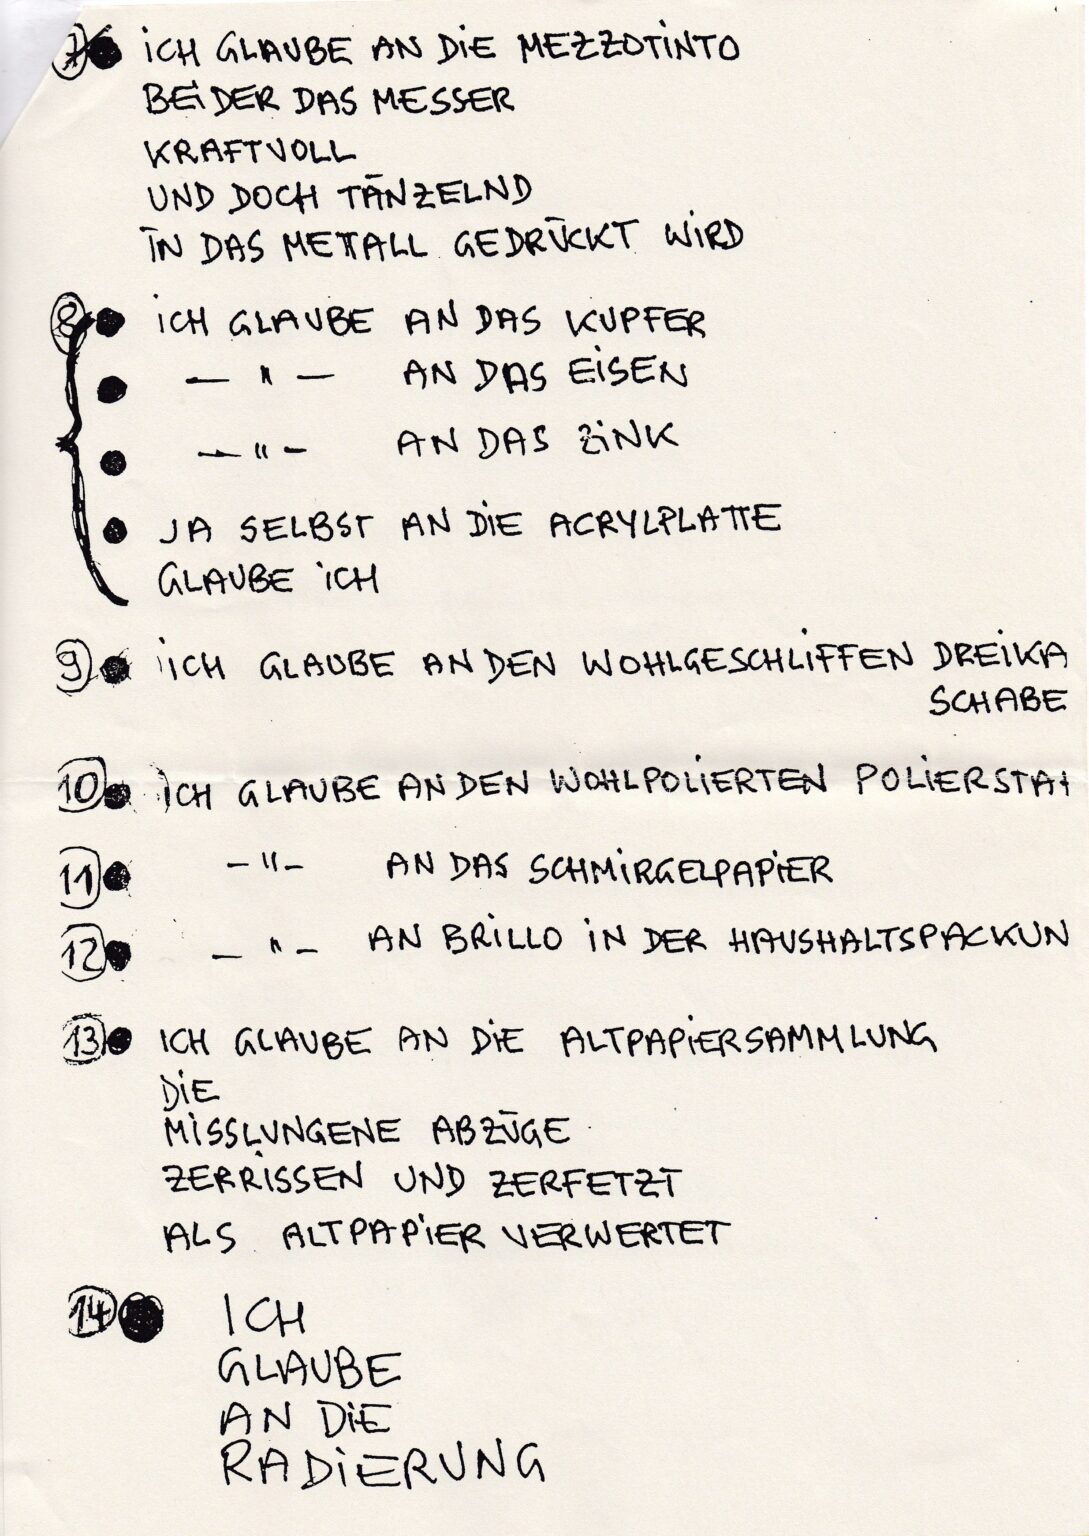 7 ● ICH GLAUBE AN DIE MEZZOTINTO
BEI DER DAS MESSER
KRAFTVOLL
UND DOCH TÄNZELND
IN DAS METTALL GEDRÜCKT WIRD
8 ● ICH GLAUBE AN DAS KUPFER
● — " — AN DAS EISEN
● — " — AN DAS ZINK
● JA SELBST AN DIE ACRYLPLATTE
GLAUBE ICH
9 ● ICH GLAUBE AN DEN WOHLGESCHLIFFEN DREIKA
SCHABE
10 ● ICH GLAUBE AN DEN WOHLPOLIERTEN POLIERSTA
11 ● — " — AN DAS SCHMIRGELPAPIER
12 ● — " — AN BRILLO IN DER HAUSHALTSPACKUN
13 ● ICH GLAUBE AN DIE ALTPAPIERSAMMLUNG
DIE
MISSLUNGENE ABZÜGE
ZERRISSEN UND ZERFETZT
ALS ALTPAPIER VERWERTET
14 ● ICH
GLAUBE
AN DIE
RADIERUNG